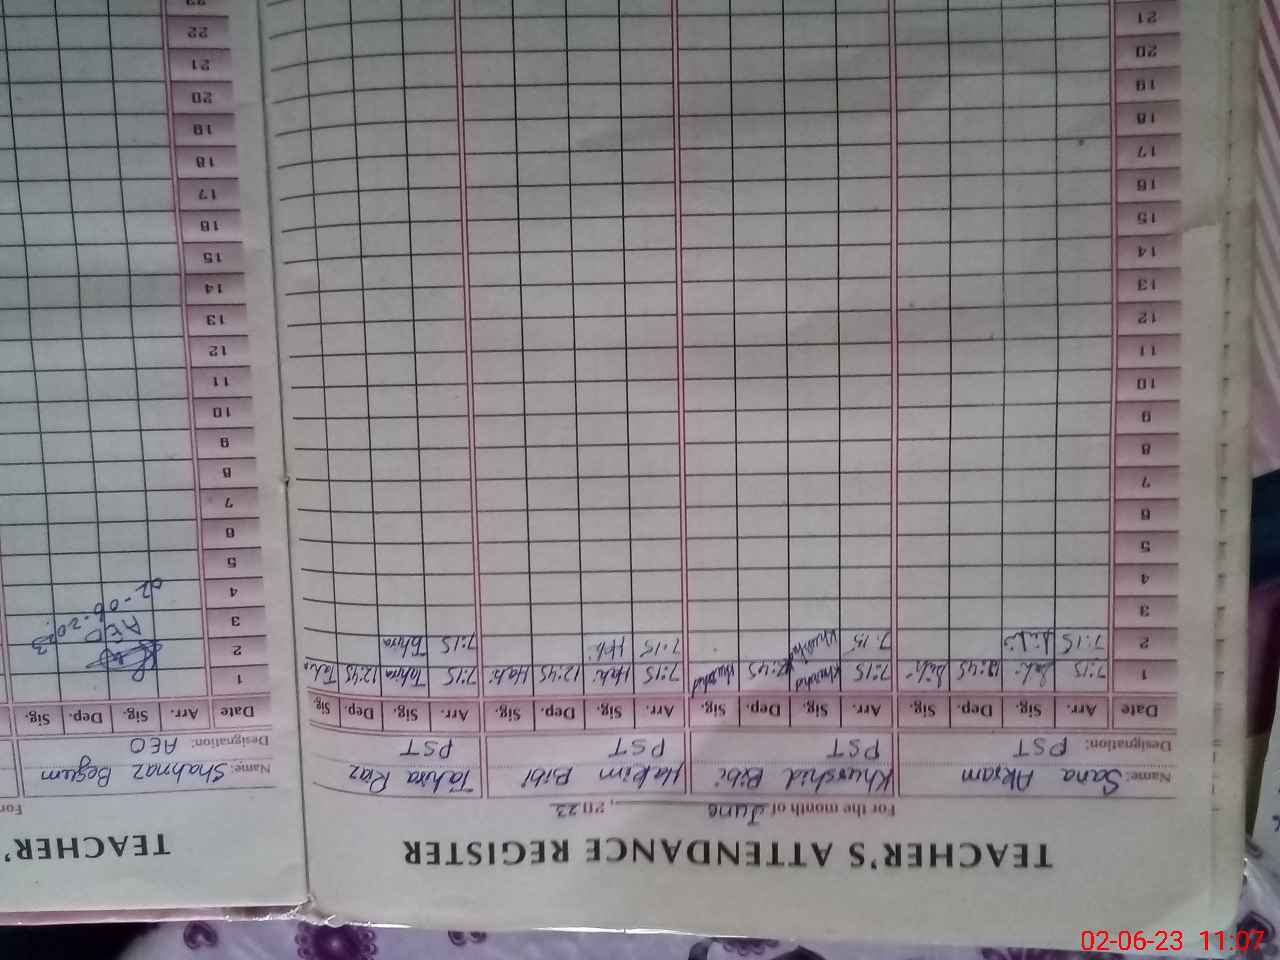 TEACHER'S ATTENDANCE REGISTER
For the month of June, 2023
Name: Sana Akram Khurshid Bibi Hakim Bibi Tahira Riaz
Designation: PST PST PST PST
Date Arr. Sig. Dep. Sig. Arr. Sig. Dep. Sig. Arr. Sig. Dep. Sig. Arr. Sig. Dep. Sig.
1 7:15 12:45 7:15 Khurshid 12:45 Khurshid 7:15 Haki 12:45 Haki 7:15 Tahira 12:45
2 7:15 7:15 Khurshid 7:15 7:15 Tahira
3
4
5
6
7
8
9
10
11
12
13
14
15
16
17
18
19
20
21
TEACHER'
For
Name: Shahnaz Begum
Designation: AEO
Date Arr. Sig. Dep. Sig.
1
2
AEO
3
02-06-2023
4
5
6
7
8
9
10
11
12
13
14
15
16
17
18
19
20
21
22
23
02-06-23 11:07